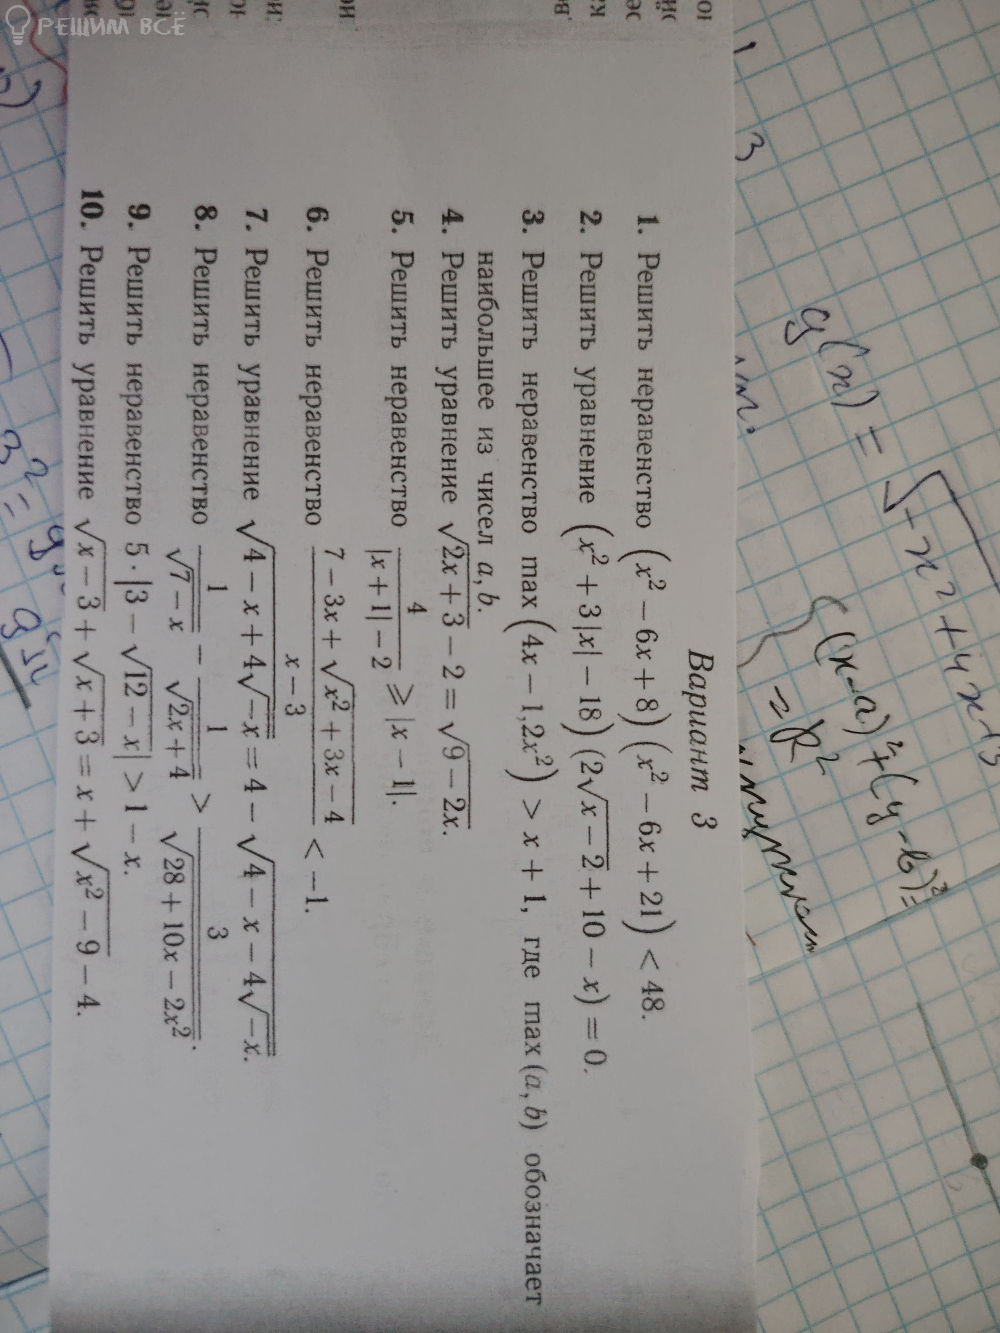 РЕШИМ ВСЁ
Вариант 3
1. Решить неравенство (x² − 6x + 8)(x² − 6x + 21) < 48.
2. Решить уравнение (x² + 3|x| − 18)(2√(x − 2) + 10 − x) = 0.
3. Решить неравенство max(4x − 1, 2x²) > x + 1, где max(a, b) обозначает
наибольшее из чисел a, b.
4. Решить уравнение √(2x + 3) − 2 = √(9 − 2x).
5. Решить неравенство 4/(|x + 1| − 2) ⩾ |x − 1|.
6. Решить неравенство (7 − 3x + √(x² + 3x − 4))/(x − 3) < −1.
7. Решить уравнение √(4 − x + 4√(−x)) = 4 − √(4 − x − 4√(−x)).
8. Решить неравенство 1/√(7 − x) − 1/√(2x + 4) > 3/√(28 + 10x − 2x²).
9. Решить неравенство 5 · |3 − √(12 − x)| > 1 − x.
10. Решить уравнение √(x − 3) + √(x + 3) = x + √(x² − 9) − 4.
(x−a)²+(y−b)²=
= R²
3
3² =